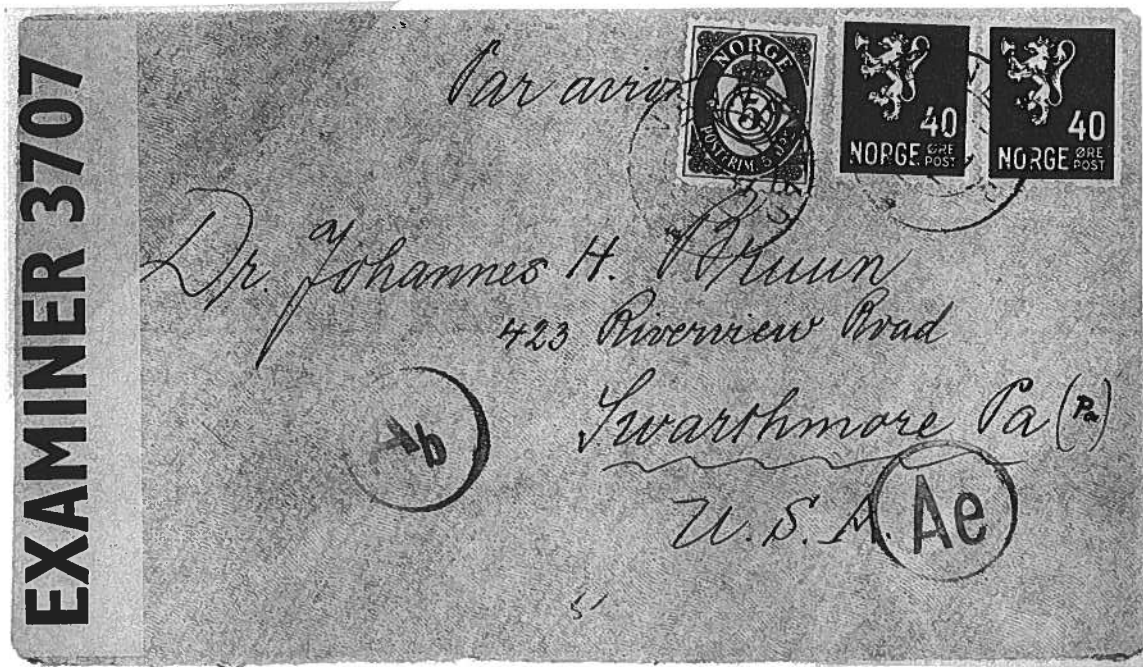 EXAMINER 3707
Par avion
NORGE
5
POSTFRIM. 5 ØRE
40
NORGE ØRE POST
40
NORGE ØRE POST
Dr. Johannes H. Bruun
423 Riverview Road
Swarthmore Pa (Pa)
U.S.A.
Ab
Ae